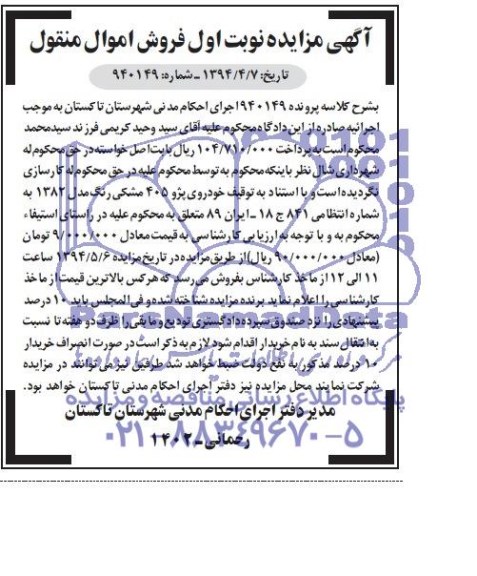 آگهی مزایده نوبت اول فروش اموال منقول
تاریخ: ۱۳۹۴/۴/۷ ـ شماره: ۹۴۰۱۴۹
بشرح کلاسه پرونده ۹۴۰۱۴۹ اجرای احکام مدنی شهرستان تاکستان به موجب
اجرائیه صادره از این دادگاه محکوم علیه آقای سید وحید کریمی فرزند سیدمحمد
محکوم است به پرداخت ۱۰۴/۷۱۰/۰۰۰ ریال بابت اصل خواسته در حق محکوم له
شهرداری شال نظر باینکه محکوم به توسط محکوم علیه در حق محکوم له کارسازی
نگردیده است و با استناد به توقیف خودروی پژو ۴۰۵ مشکی رنگ مدل ۱۳۸۲ به
شماره انتظامی ۸۴۱ ج ۱۸ ـ ایران ۸۹ متعلق به محکوم علیه در راستای استیفاء
محکوم به و با توجه به ارزیابی کارشناسی به قیمت معادل ۹/۰۰۰/۰۰۰ تومان
(معادل ۹۰/۰۰۰/۰۰۰ ریال) از طریق مزایده در تاریخ مزایده ۱۳۹۴/۵/۶ ساعت
۱۱ الی ۱۲ از ماخذ کارشناس بفروش می رسد که هر کس بالاترین قیمت از ماخذ
کارشناسی را اعلام نماید برنده مزایده شناخته شده و فی المجلس باید ۱۰ درصد
پیشنهادی را نزد صندوق سپرده دادگستری تودیع و مابقی را ظرف دو هفته تا نسبت
به انتقال سند به نام خریدار اقدام شود لازم به ذکر است در صورت انصراف خریدار
۱۰ درصد مذکور به نفع دولت ضبط خواهد شد طرفین نیز می توانند در مزایده
شرکت نمایند محل مزایده نیز دفتر اجرای احکام مدنی تاکستان خواهد بود.
پایگاه اطلاع رسانی مناقصه و مزایده
مدیر دفتر اجرای احکام مدنی شهرستان تاکستان
رحمانی ـ ۱۴۰۲
۰۲۱-۸۸۳۴۹۶۷۰-۵
ParsNamadData